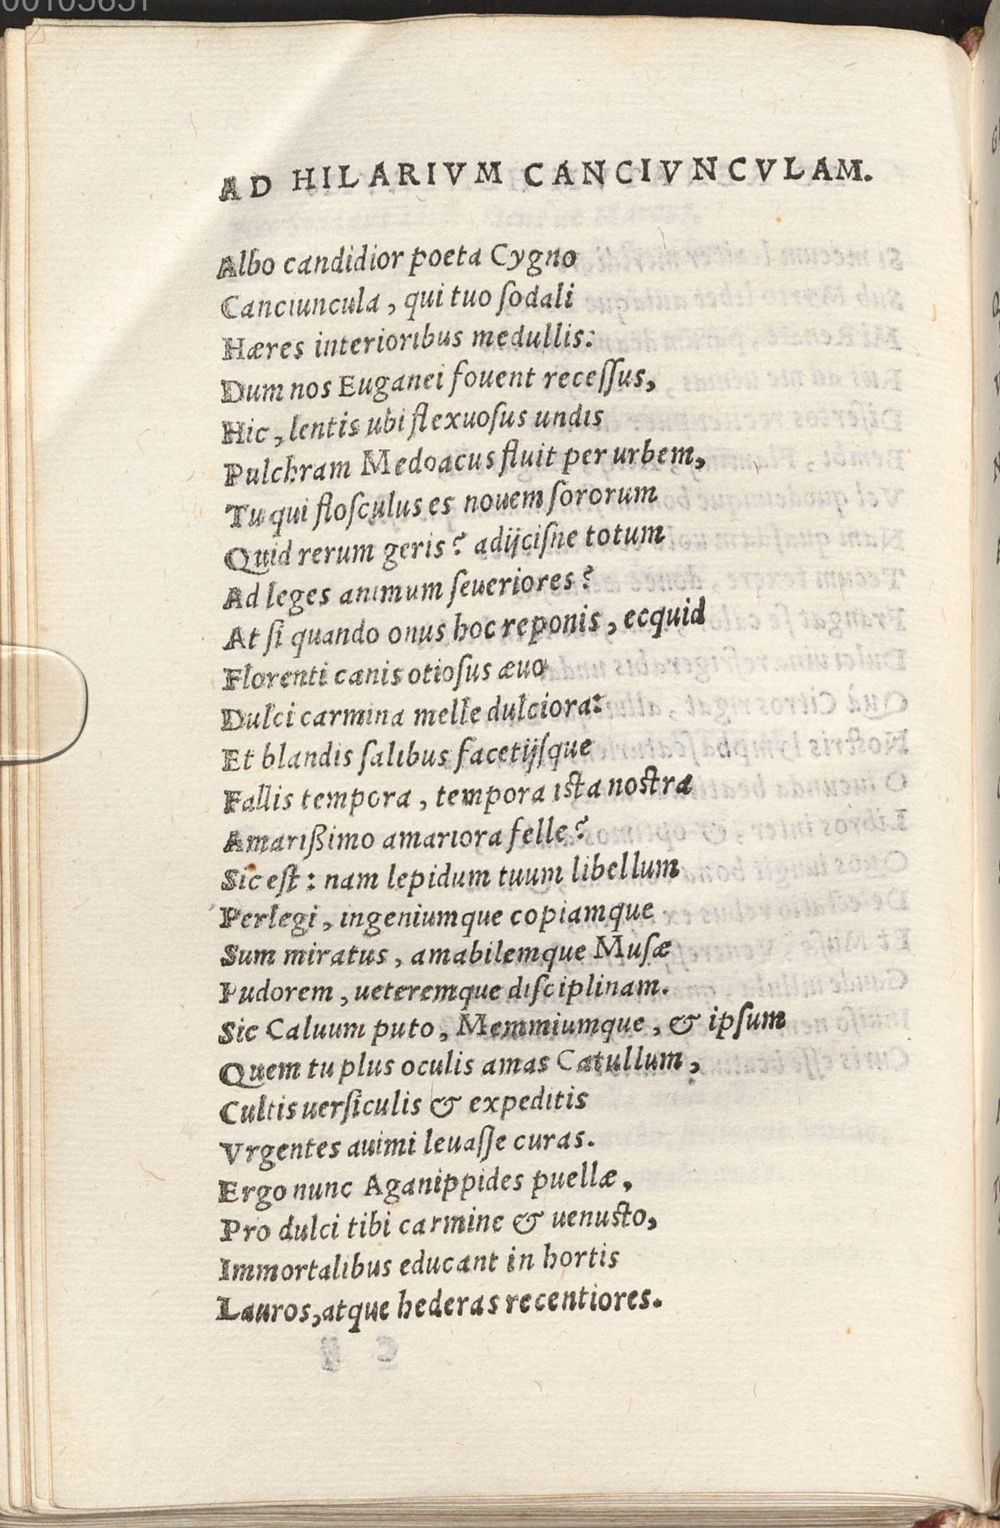 00105851
AD HILARIVM CANCIVNCVLAM.
Albo candidior poeta Cygno
Canciuncula, qui tuo ſodali
Hæres interioribus medullis:
Dum nos Euganei fouent receſſus,
Hic, lentis ubi flexuoſus undis
Pulchram Medoacus fluit per urbem,
Tu qui floſculus es nouem ſororum
Quid rerum geris? adijciſne totum
Ad leges animum ſeueriores?
At ſi quando onus hoc reponis, ecquid
Florenti canis otioſus æuo
Dulci carmina melle dulciora?
Et blandis ſalibus facetijſque
Fallis tempora, tempora iſta noſtra
Amarißimo amariora felle?
Sic eſt: nam lepidum tuum libellum
Perlegi, ingeniumque copiamque
Sum miratus, amabilemque Muſæ
Pudorem, ueteremque diſciplinam.
Sic Caluum puto, Memmiumque, & ipſum
Quem tu plus oculis amas Catullum,
Cultis uerſiculis & expeditis
Vrgentes auimi leuaſſe curas.
Ergo nunc Aganippides puellæ,
Pro dulci tibi carmine & uenuſto,
Immortalibus educant in hortis
Lauros, atque hederas recentiores.